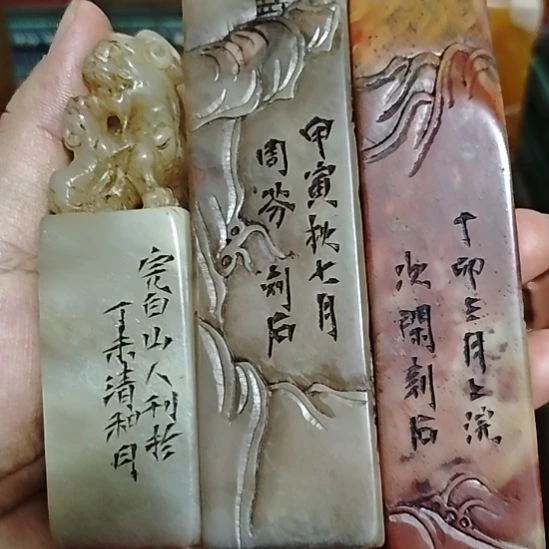 完白山人刊於
丁未清和月
甲寅秋七月
周芬刻石
丁卯三月上浣
次閑刻石